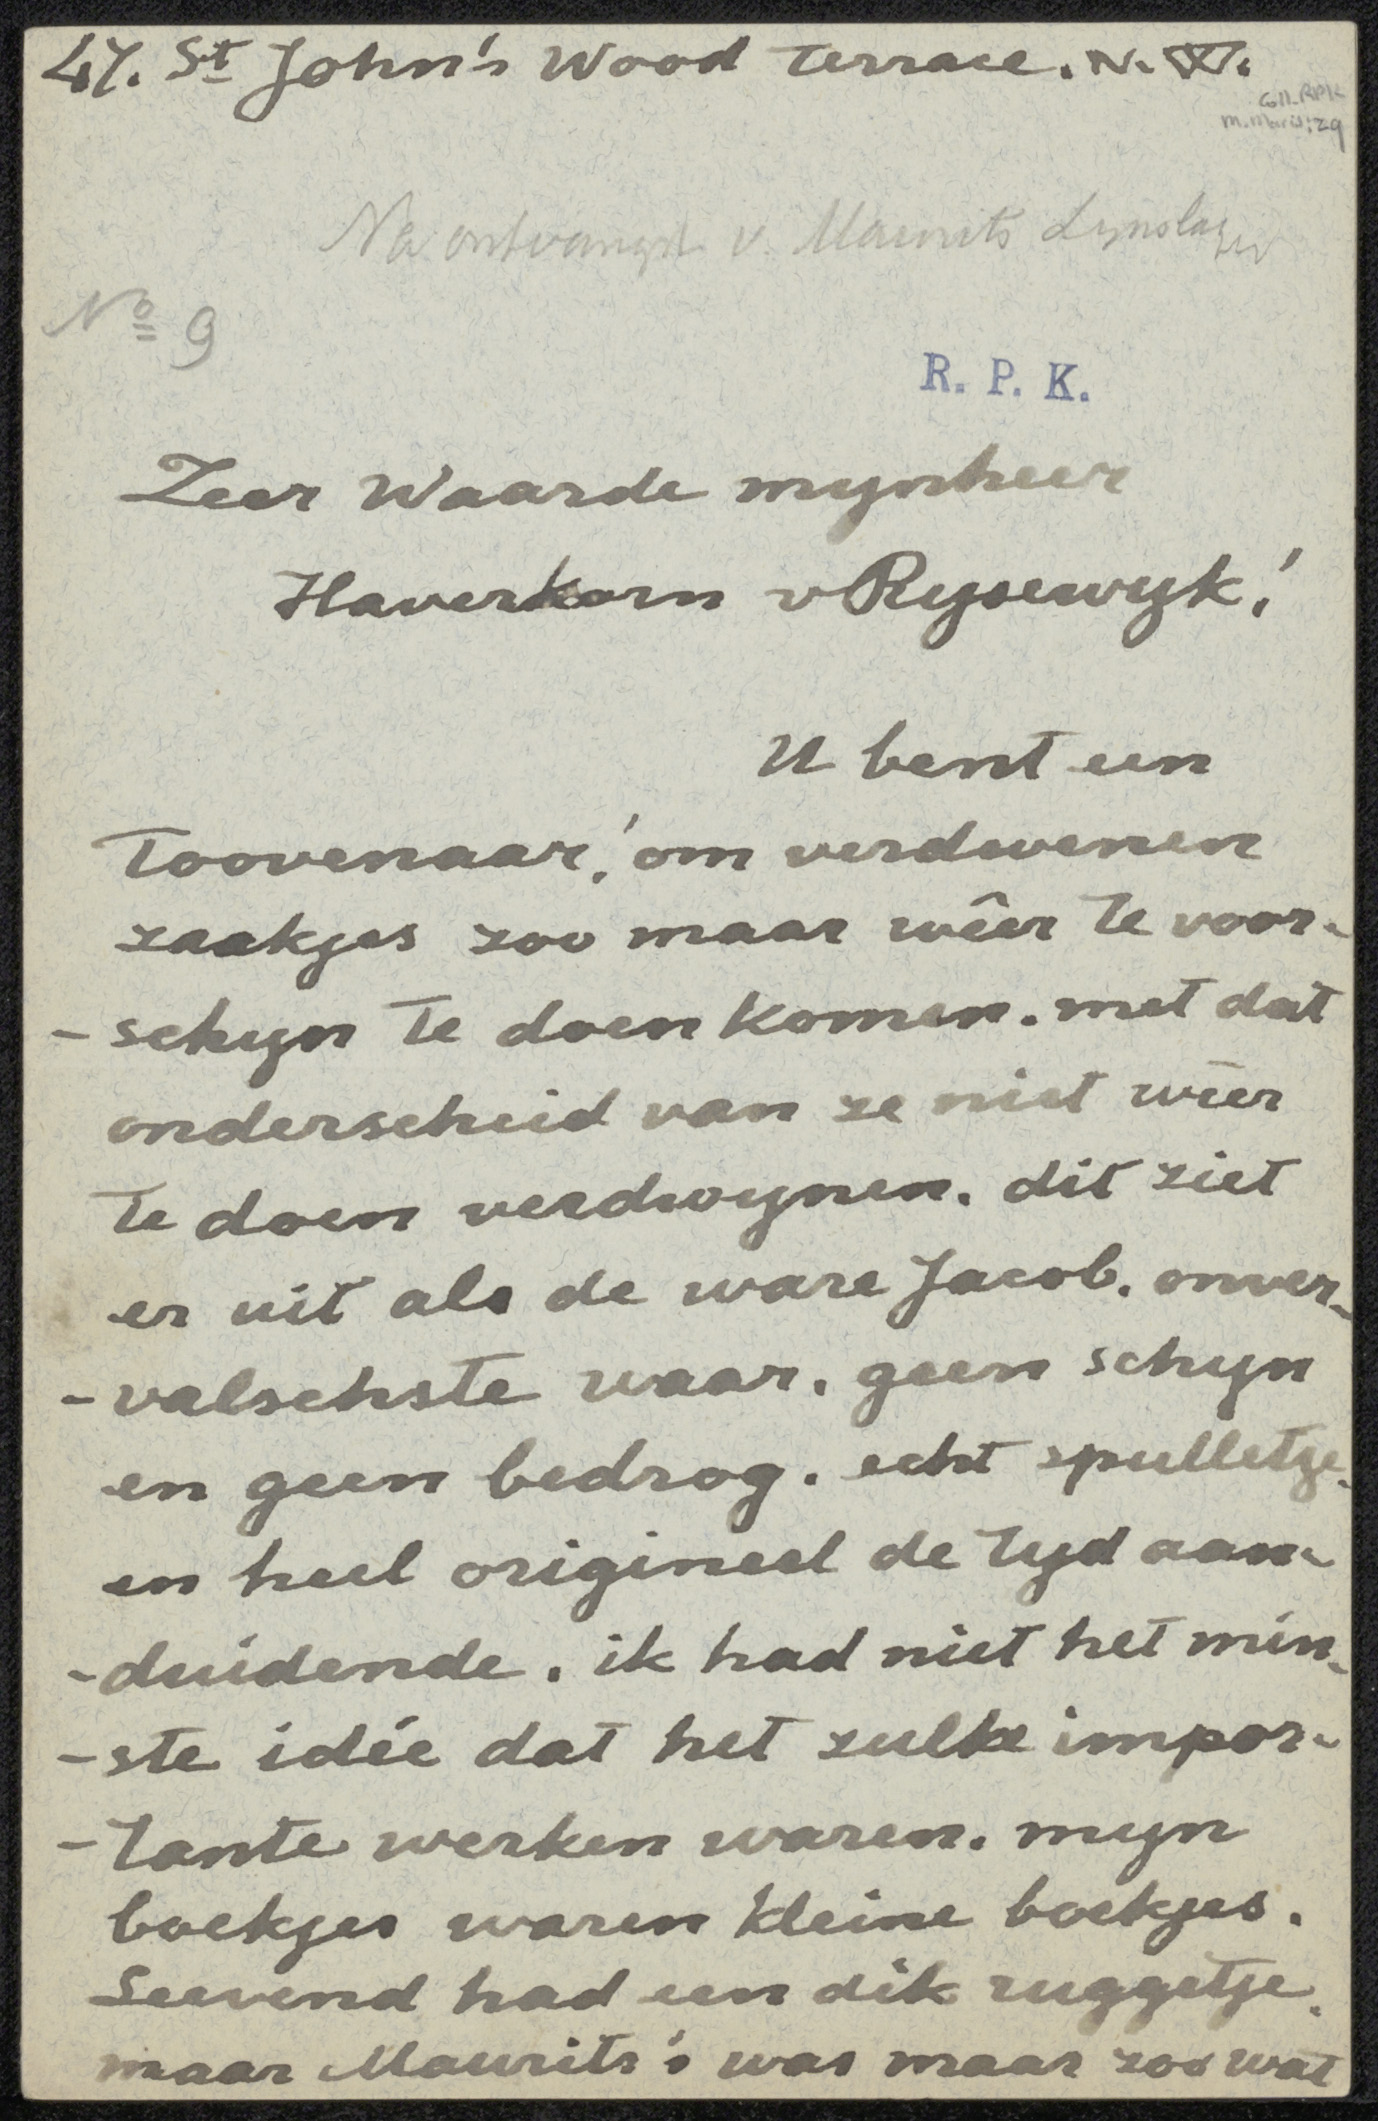 47. St John's Wood Terrace. N. W.
Coll. RPK
M. Maris: 29
Na ontvangst v. Maurits Lynslager
No 9
R. P. K.
Zeer Waarde mynheer
Haverkorn v Rysewyk!
U bent een
Toovenaar! om verdwenen
zaakjes zoo maar wêer te voor-
-schyn te doen komen. met dat
onderscheid van ze niet wêer
te doen verdwynen. dit ziet
er uit als de ware Jacob. onver-
-valschste waar. geen schyn
en geen bedrog. echt spulletje.
en heel origineel de tyd aan-
-duidende. ik had niet het min-
-ste idée dat het zulke impor-
-tante werken waren. myn
boekjes waren kleine boekjes.
Seevend had een dik ruggetje.
maar Maurits's was maar zoo wat